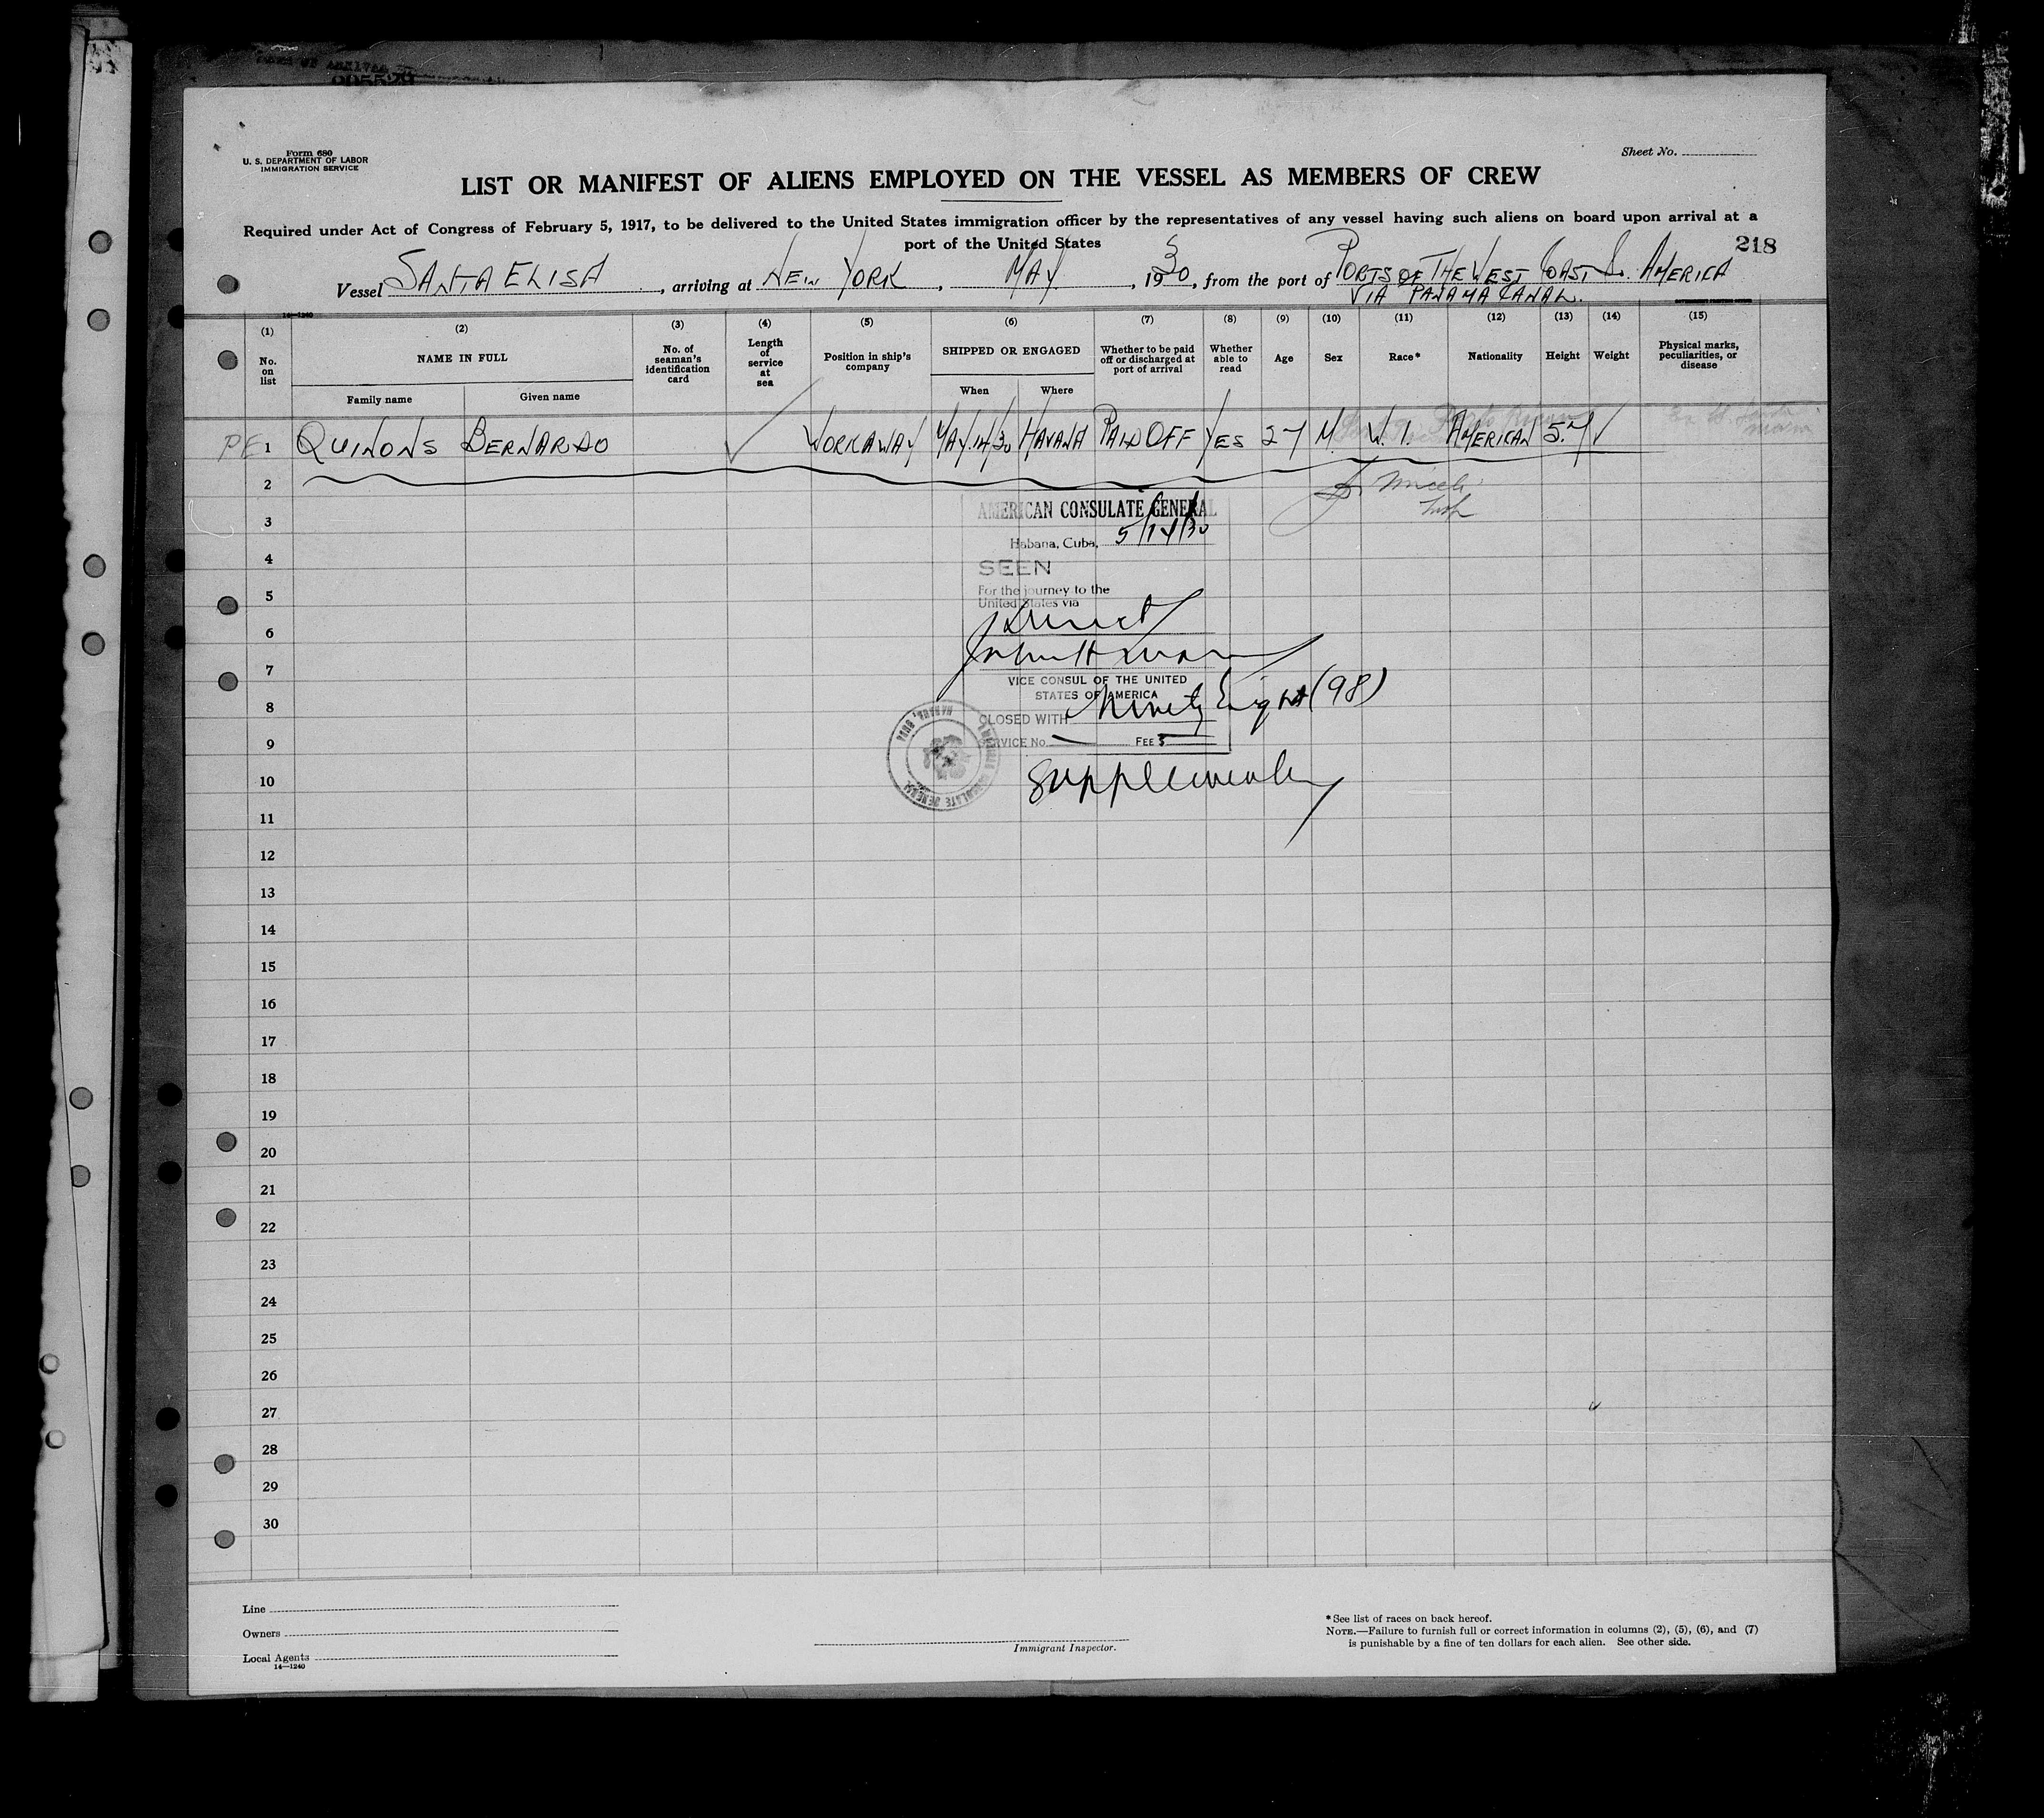 Form 680
U. S. DEPARTMENT OF LABOR
IMMIGRATION SERVICE
Sheet No.
LIST OR MANIFEST OF ALIENS EMPLOYED ON THE VESSEL AS MEMBERS OF CREW
Required under Act of Congress of February 5, 1917, to be delivered to the United States immigration officer by the representatives of any vessel having such aliens on board upon arrival at a
port of the United States
218
Vessel SANTA ELISA, arriving at NEW YORK, MAY, 1930, from the port of PORTS OF THE WEST COAST S. AMERICA
VIA PANAMA CANAL.
14—1240
(1) (2) (3) (4) (5) (6) (7) (8) (9) (10) (11) (12) (13) (14) (15)
No. on list
NAME IN FULL
Family name
Given name
No. of seaman's identification card
Length of service at sea
Position in ship's company
SHIPPED OR ENGAGED
When
Where
Whether to be paid off or discharged at port of arrival
Whether able to read
Age
Sex
Race*
Nationality
Height
Weight
Physical marks, peculiarities, or disease
PE 1 QUINONS BERNARDO WORKAWAY MAY.14/30 HAVANA PAID OFF YES 27 M. W. I. AMERICAN 5.7
2
3
4
5
6
7
8
9
10
11
12
13
14
15
16
17
18
19
20
21
22
23
24
25
26
27
28
29
30
AMERICAN CONSULATE GENERAL
Habana, Cuba, 5/14/30
SEEN
For the journey to the
United States via
Direct
VICE CONSUL OF THE UNITED
STATES OF AMERICA
CLOSED WITH Ninety Eight (98)
SERVICE No. FEE $
Supplementary
Line
Owners
Local Agents
14—1240
Immigrant Inspector.
*See list of races on back hereof.
NOTE.—Failure to furnish full or correct information in columns (2), (5), (6), and (7)
is punishable by a fine of ten dollars for each alien. See other side.